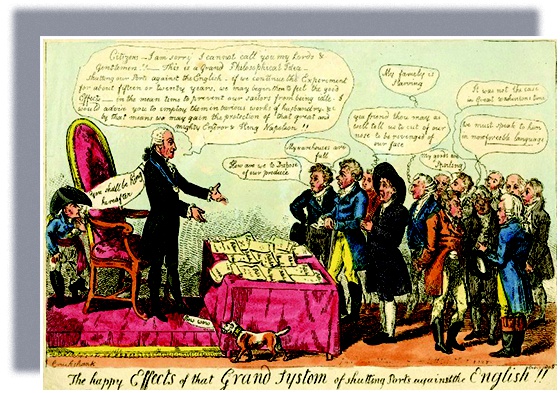 Citizens — I am sorry I cannot call you my Lords &
Gentlemen!! — This is a Grand Philosophical Idea —
shutting our Ports against the English — if we continue the Experiment
for about fifteen or twenty years, we may begin then to feel the good
Effects — in the mean time to prevent our sailors from being idle. I
would advise you to employ them in various works of husbandry &c
by that means we may gain the protection of that great and
mighty Emperor & King Napolion!!
My family is
Starving
It was not the case
in Great Washingtons time
you friend thou mays as
well tell us to cut of our
nose to be revenged of
our face
We must speak to him
in more forceable language
My warehouses are
full
My goods are
Spoiling
How are we to Dispose
of our produce
You shall be King
hereafter
Bow wow
Cruikshank
The happy Effects of that Grand System of shutting Ports against the English!!